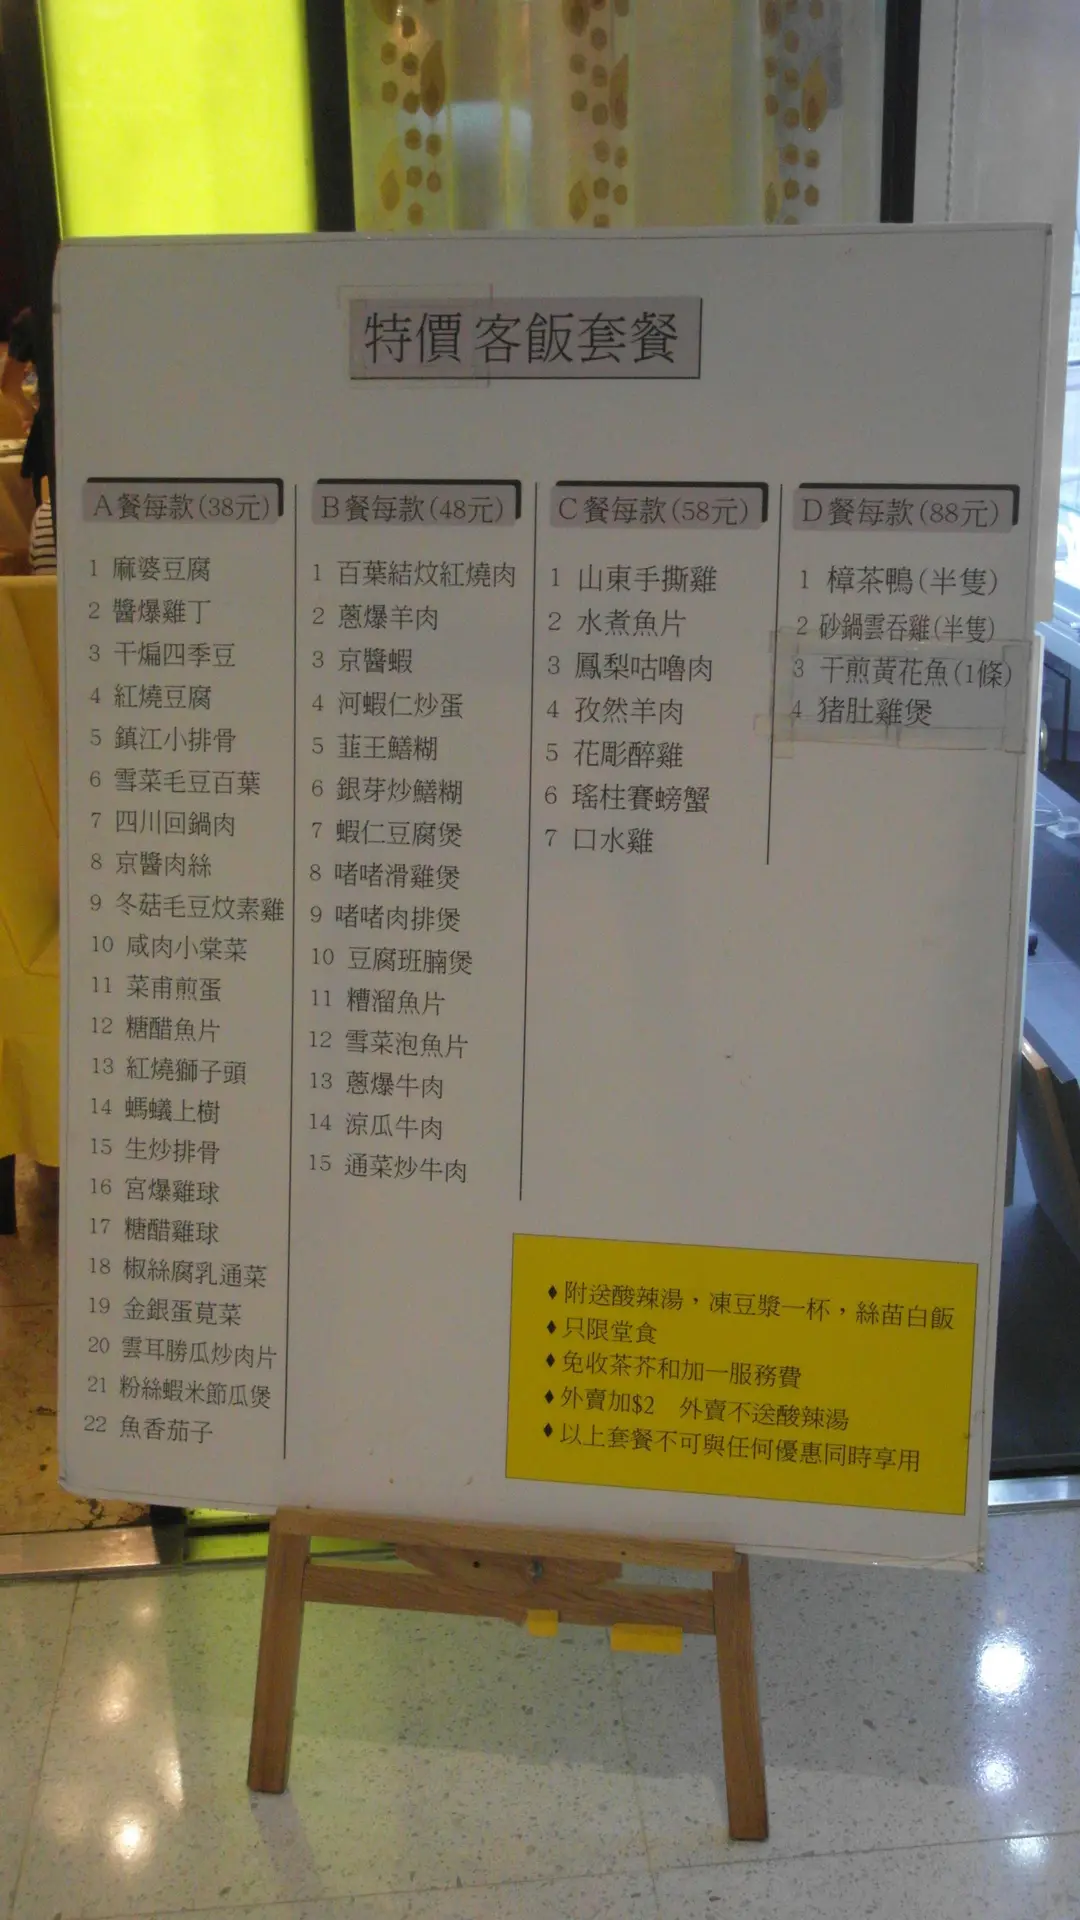 特價 客飯套餐
A餐每款(38元)
1 麻婆豆腐
2 醬爆雞丁
3 干煸四季豆
4 紅燒豆腐
5 鎮江小排骨
6 雪菜毛豆百葉
7 四川回鍋肉
8 京醬肉絲
9 冬菇毛豆炆素雞
10 咸肉小棠菜
11 菜甫煎蛋
12 糖醋魚片
13 紅燒獅子頭
14 螞蟻上樹
15 生炒排骨
16 宮爆雞球
17 糖醋雞球
18 椒絲腐乳通菜
19 金銀蛋莧菜
20 雲耳勝瓜炒肉片
21 粉絲蝦米節瓜煲
22 魚香茄子
B餐每款(48元)
1 百葉結炆紅燒肉
2 蔥爆羊肉
3 京醬蝦
4 河蝦仁炒蛋
5 韮王鱔糊
6 銀芽炒鱔糊
7 蝦仁豆腐煲
8 啫啫滑雞煲
9 啫啫肉排煲
10 豆腐班腩煲
11 糟溜魚片
12 雪菜泡魚片
13 蔥爆牛肉
14 涼瓜牛肉
15 通菜炒牛肉
C餐每款(58元)
1 山東手撕雞
2 水煮魚片
3 鳳梨咕嚕肉
4 孜然羊肉
5 花彫醉雞
6 瑤柱賽螃蟹
7 口水雞
D餐每款(88元)
1 樟茶鴨(半隻)
2 砂鍋雲吞雞(半隻)
3 干煎黃花魚(1條)
4 猪肚雞煲
♦附送酸辣湯，凍豆漿一杯，絲苗白飯
♦只限堂食
♦免收茶芥和加一服務費
♦外賣加$2 外賣不送酸辣湯
♦以上套餐不可與任何優惠同時享用